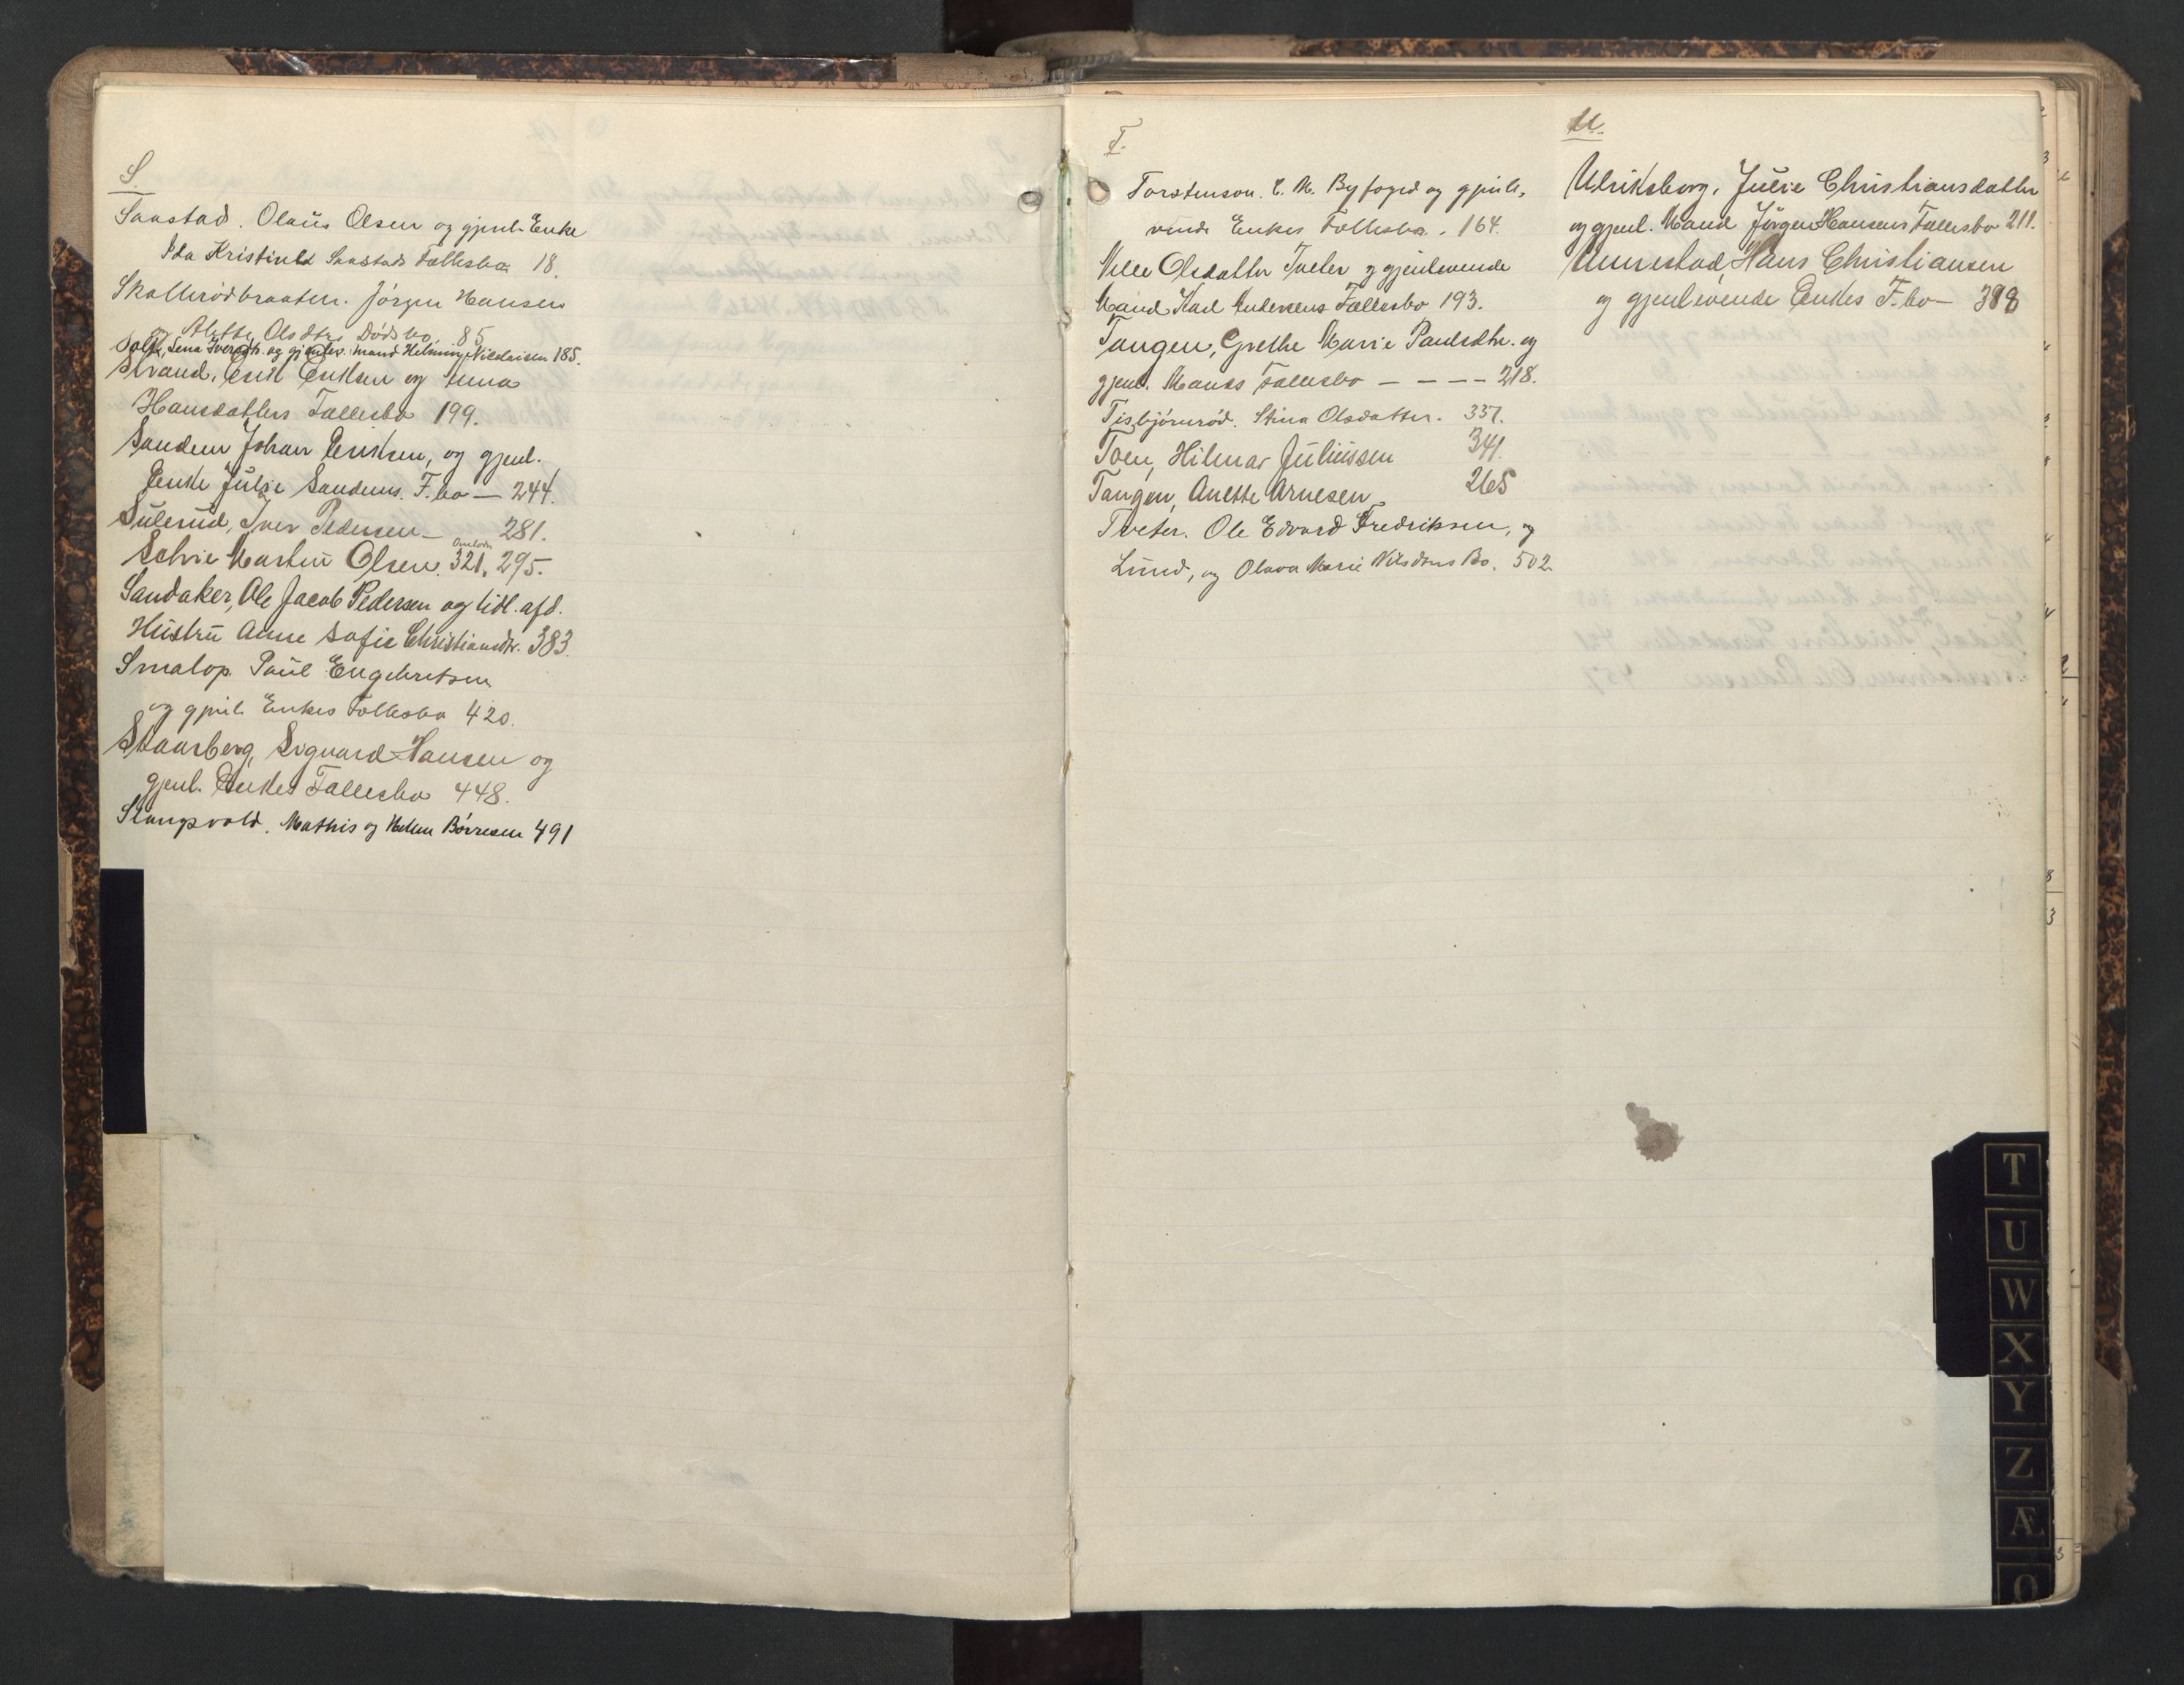 S.
Saastad. Olaus Olsen og gjenl. Enke
Ida Kristine Saastads Fællesbo 18.
Skallerödbraaten. Jörgen Hansen
og Alette Olsdtrs Dödsbo. 85
Solli, Lena Iversdtr. og gjenlev. mand Helming Nicolaisen 185.
Strand, Erik Eriksen og Anna
Hansdatters Fællesbo 199.
Sanden Johan Eriksen, og gjenl.
Enke Julie Sandens F.bo — 244.
Sulerud, Iver Pedersen — 281.
Solvie Martin Olsen. 321, 295.
Sandaker, Ole Jacob Pedersen og tidl. afd.
Hustru Anne Sofie Christiansdtr. 383.
Smalop. Paul Engebretsen
og gjenl. Enkes Fællesbo 420.
Skaarberg, Sigvard Hansen og
gjenl. Enkes Fællesbo 448.
Stangvold. Mathis og Helene Börresen 491
T.
Torstenson. C. M. Byfoged og gjenle-
vende Enkes Fællesbo. 164.
Olsdatter Tveter og gjenlevende
Mand Karl Andersens Fællesbo 193.
Tangen, Grethe Marie Paulsdtr. og
gjenl. Mands Fællesbo — — — — 218.
Tisbjörnröd. Stina Olsdatter. 337.
Toen, Hilmar Juliussen 341.
Tangen, Anette Arnesen 265
Tveter. Ole Edvard Fredriksen, og
Lund, og Olava Marie Nilsdtrs Bo. 502.
U.
Ulriksborg, Julie Christiansdatter
og gjenl. Mand Jörgen Hansens Fællesbo 211.
Unnestad, Hans Christiansen
og gjenlevende Enkes F.bo — 388
T
U
W
X
Y
Z
Æ
Ø